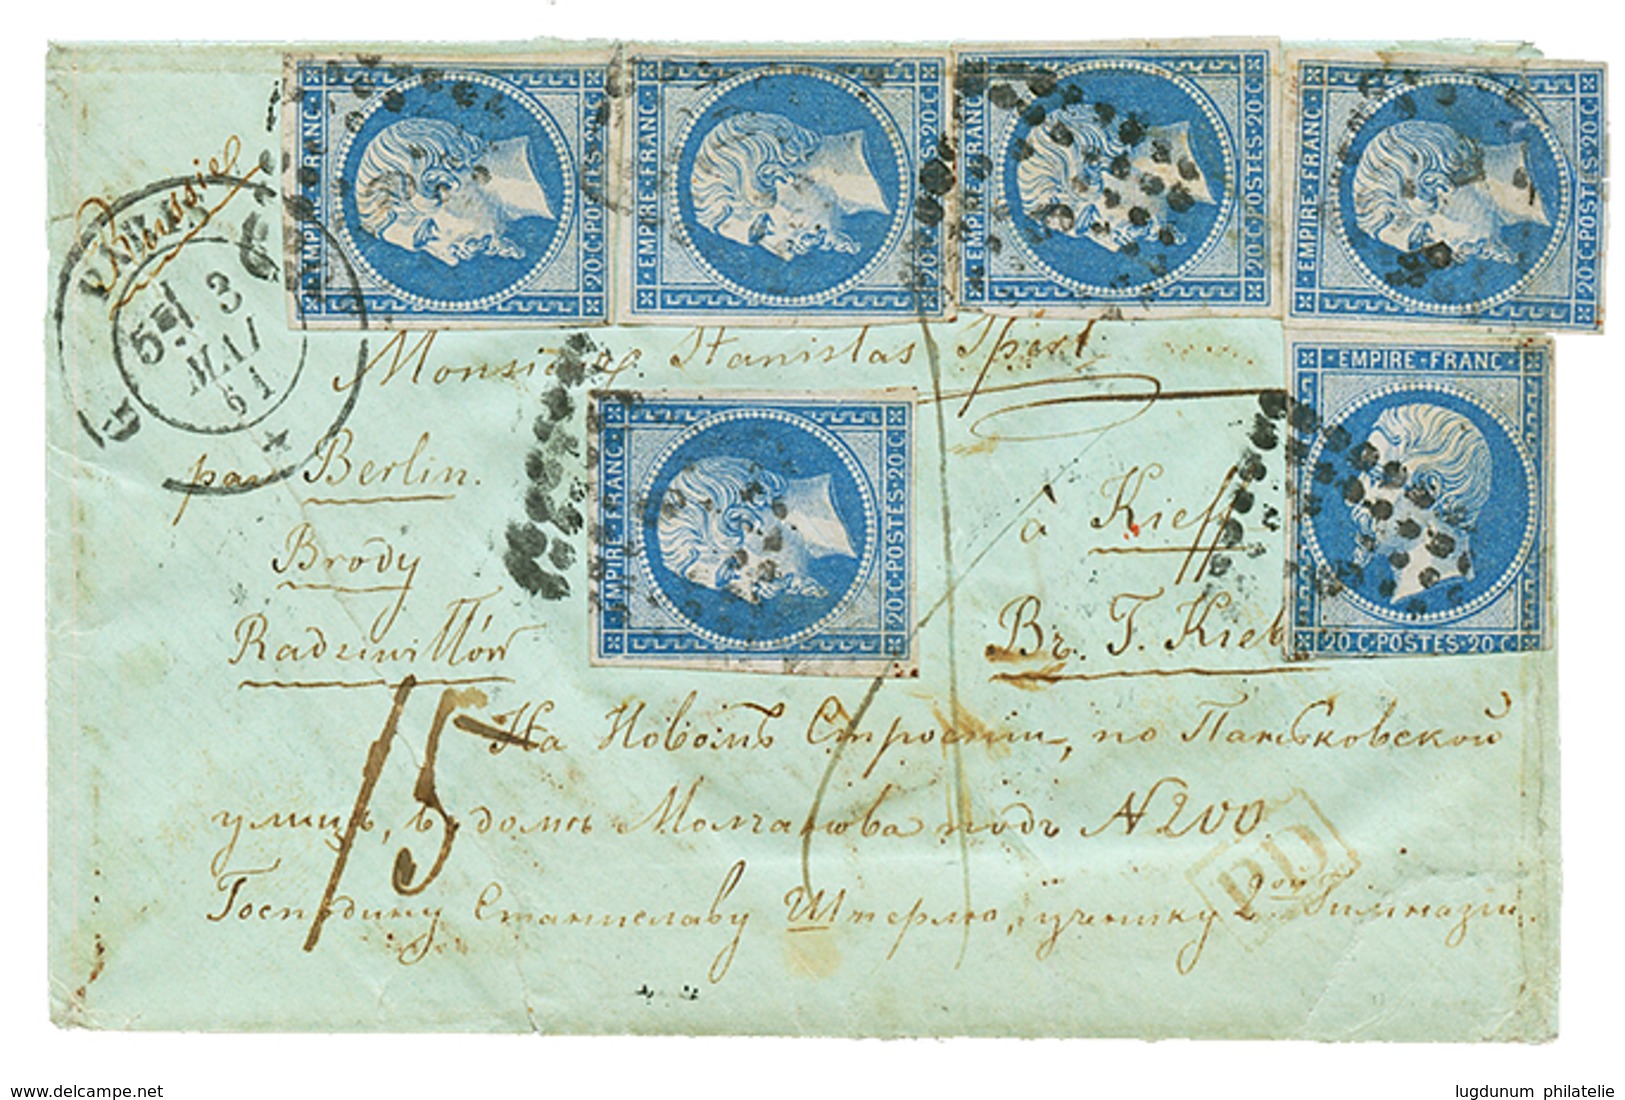 Russie
PARIS
5E 3
MAI
61
G
EMPIRE·FRANC·
20·C·POSTES·20·C·
EMPIRE·FRANC·
20·C·POSTES·20·C·
EMPIRE·FRANC·
20·C·POSTES·20·C·
EMPIRE·FRANC·
20·C·POSTES·20·C·
EMPIRE·FRANC·
20·C·POSTES·20·C·
EMPIRE·FRANC·
20·C·POSTES·20·C·
Monsieur Stanislas
par Berlin.
Brody
Radziwillów
à Kieff
Въ Г. Кіевъ
15
На Новомъ Строеніи, по Паньковской
улицѣ, въ домѣ Молчанова подъ N 200.
Господину Станиславу, ученику 2ой Гимназіи.
PD
delcampe.net
lugdunum philatelie